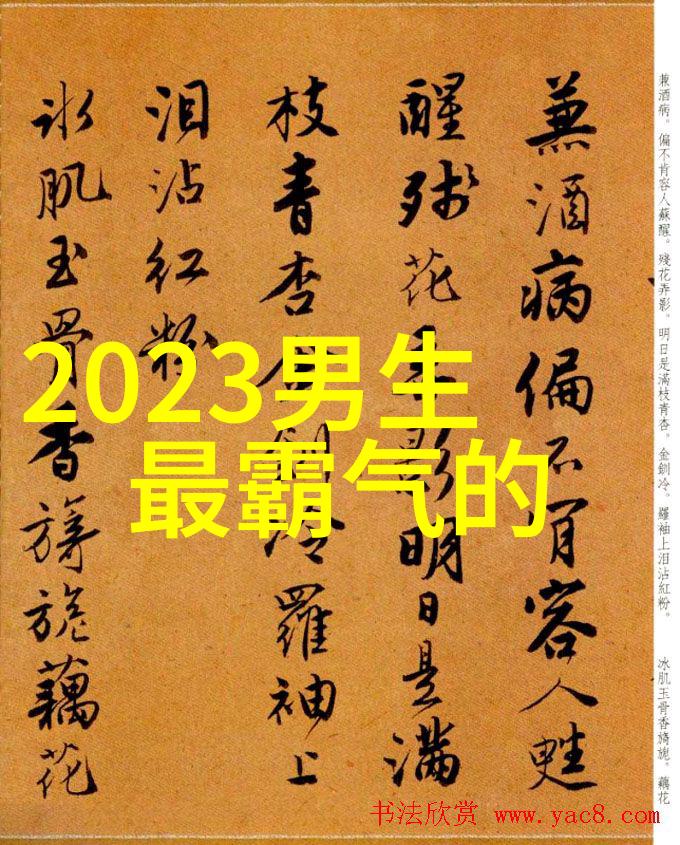 兼酒病偏不肯容人甦
醒残花弄影明日是满
枝青杏金釧冷羅袖上
泪沾红粉
冰肌玉骨香旖旎藕花
兼酒病。偏不肯容人蘇醒。殘花弄影。明日是滿枝青杏。金釧冷。羅袖上泪沾紅粉。
冰肌玉骨香旖旎。藕花
2023男生
最霸气的
书法欣赏 www.yac8.com